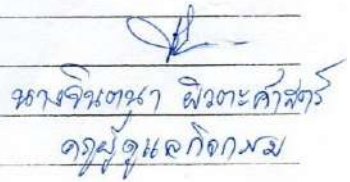 นางจินตนา ผิวตะศาสตร์
ครูผู้ดูแลกิจกรรม